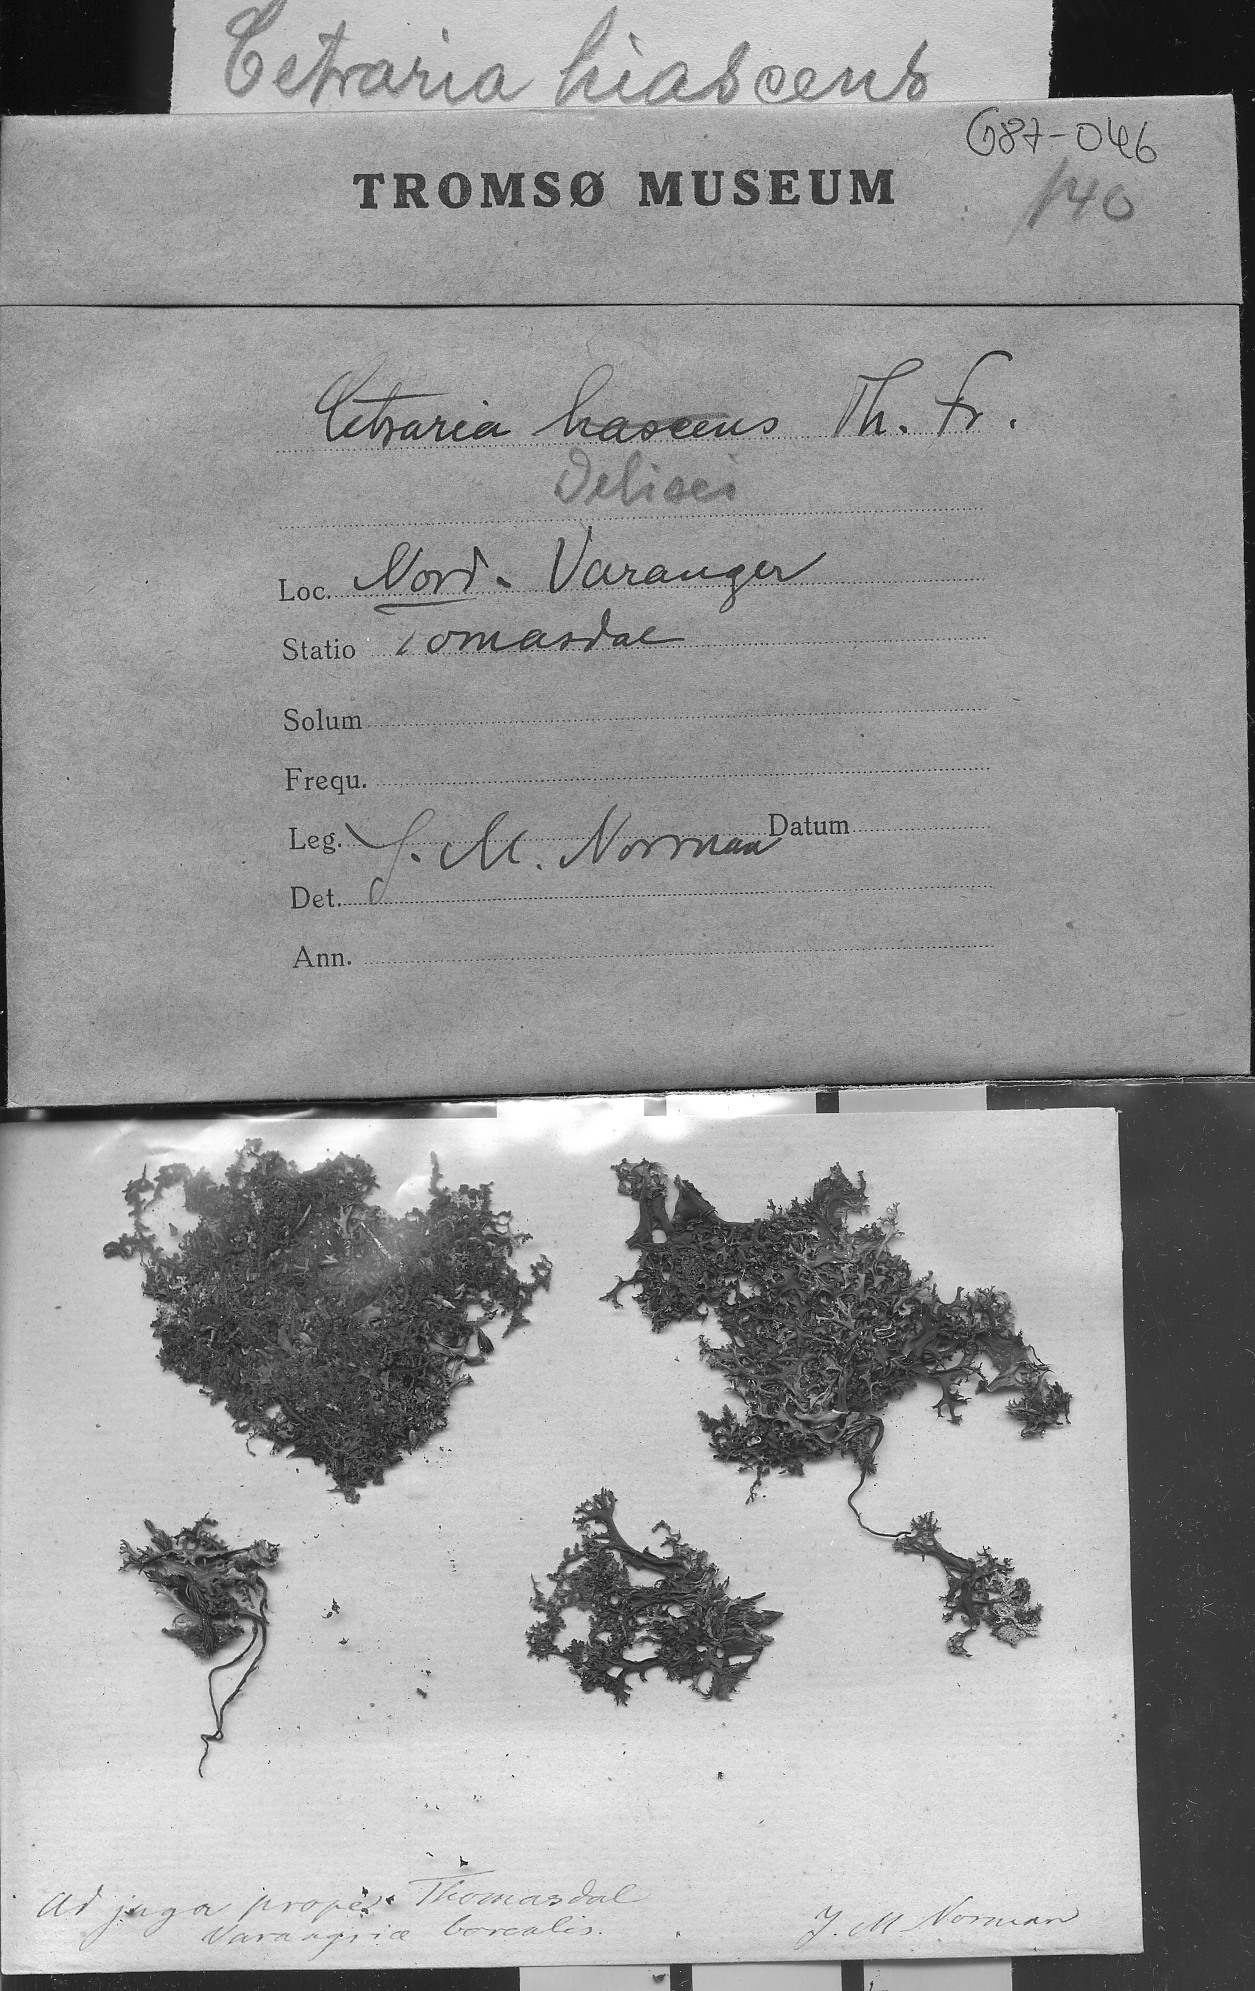 Cetraria hiascens
G87-046
TROMSØ MUSEUM
140
Cetraria hascens Th. Fr.
Delisei
Loc. Nord-Varanger
Statio Tomasdal
Solum
Frequ.
Leg. J. M. Norman Datum
Det.
Ann.
Ad juga prope Thomasdal
Varangriæ borealis.
J. M Norman